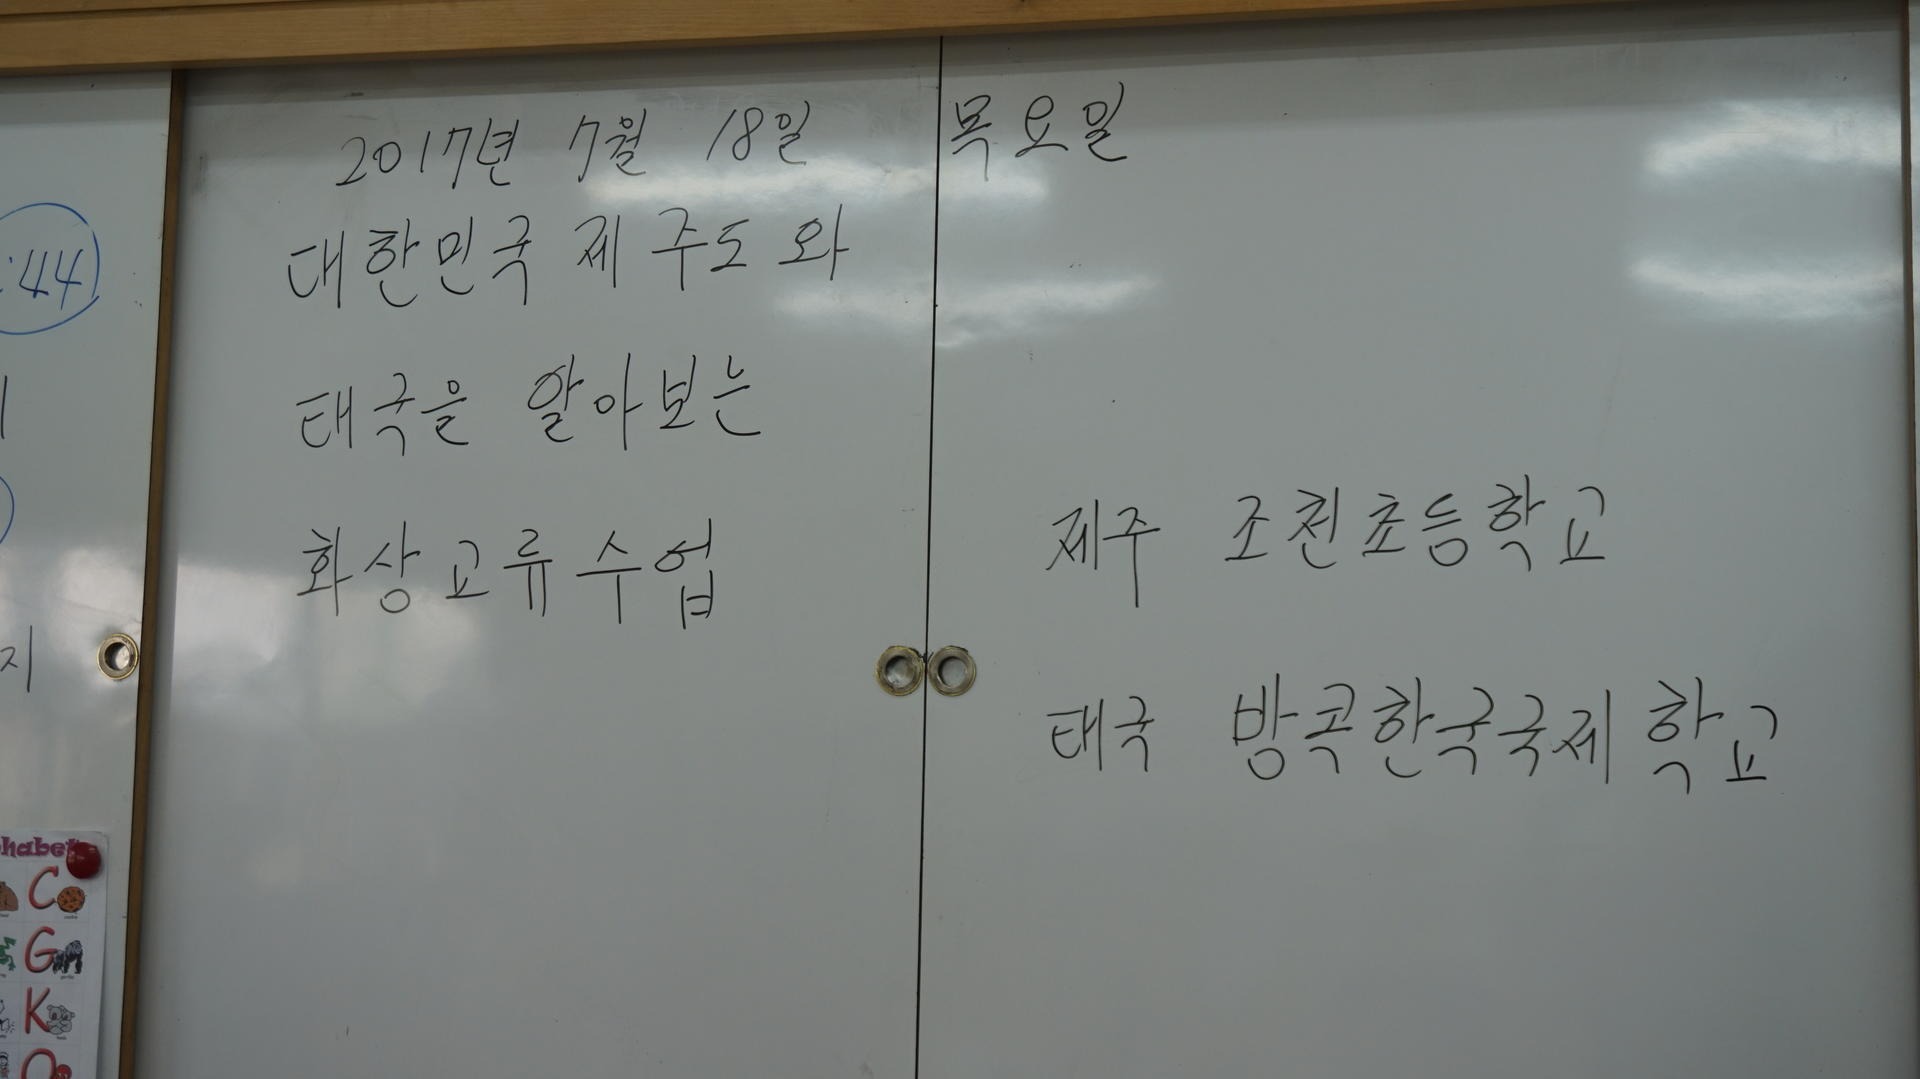 2017년 7월 18일 목요일
대한민국 제주도와
태국을 알아보는
화상교류수업
제주 조천초등학교
태국 방콕한국국제학교
:44
지
C
G
K